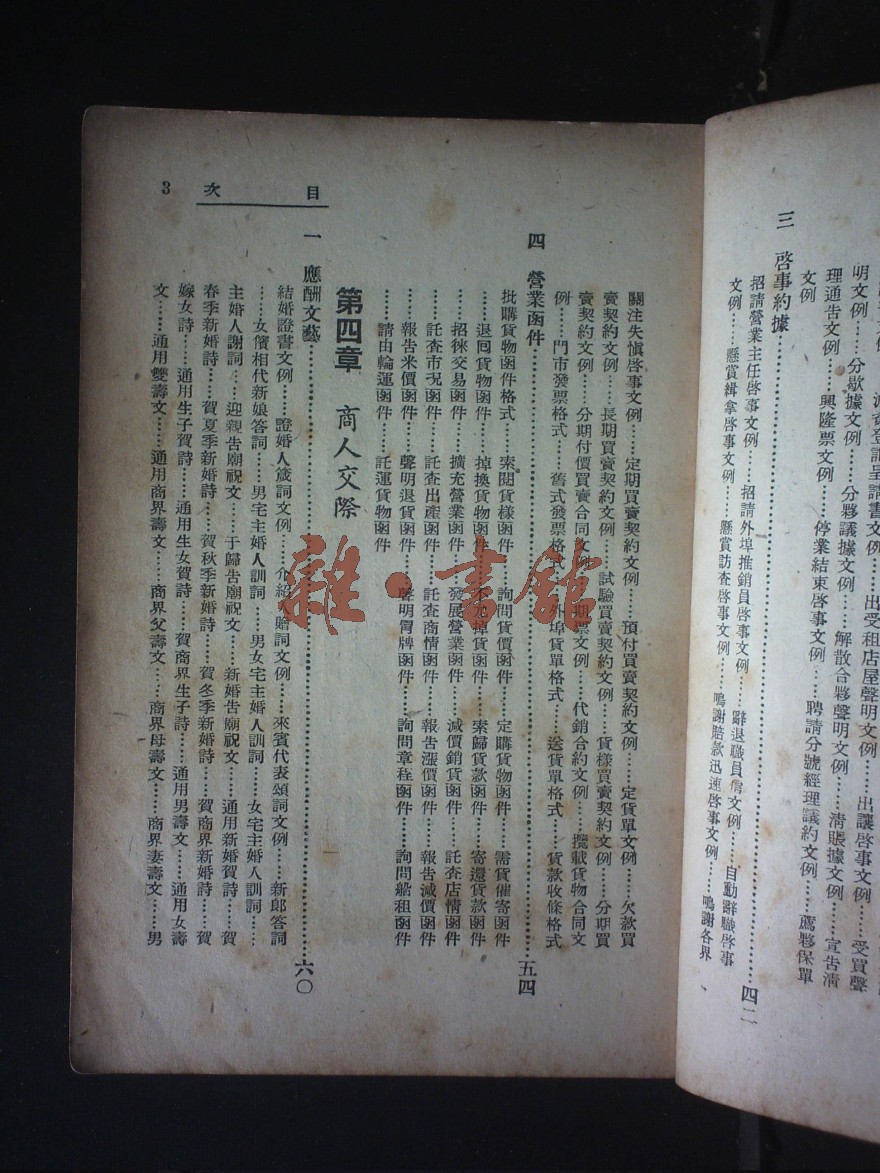 減資登記呈請書文例……出受租店屋聲明文例……出讓啓事文例……受買聲
明文例……分歇據文例……分夥議據文例……解散合夥聲明文例……清賬據文例……宣告清
理通告文例……興隆票文例……停業結束啓事文例……聘請分號經理議約文例……薦夥保單
文例
三 啓事約據……四二
招請營業主任啓事文例……招請外埠推銷員啓事文例……辭退職員啓事文例……自動辭職啓事
文例……懸賞緝拿啓事文例……懸賞訪查啓事文例……鳴謝賠款迅速啓事文例……鳴謝各界
目 次 3
關注失愼啓事文例……定期買賣契約文例……預付買賣契約文例……定貨單文例……欠款買
賣契約文例……長期買賣契約文例……試驗買賣契約文例……貨樣買賣契約文例……分期買
賣契約文例……分期付價買賣合同文例……期票文例……代銷合約文例……攬載貨物合同文
例……門市發票格式……舊式發票格式……外埠貨單格式……送貨單格式……貨款收條格式
四 營業函件……五四
批購貨物函件格式……索閱貨樣函件……詢問貨價函件……定購貨物函件……需貨催寄函件
……退囘貨物函件……掉換貨物函件……不允掉貨函件……索歸貨款函件……寄還貨款函件
……招徠交易函件……擴充營業函件……發展營業函件……減價銷貨函件……託查店情函件
……託查市况函件……託查出產函件……託查商情函件……報告漲價函件……報告減價函件
……報告米價函件……聲明退貨函件……聲明冒牌函件……詢問章程函件……詢問船租函件
……請由輪運函件……託運貨物函件
第四章 商人交際
一 應酬文藝……六〇
結婚證書文例……證婚人箴詞文例……介紹人贈詞文例……來賓代表頌詞文例……新郎答詞
……女儐相代新娘答詞……男宅主婚人訓詞……男女宅主婚人訓詞……女宅主婚人訓詞……
主婚人謝詞……迎親告廟祝文……于歸告廟祝文……新婚告廟祝文……通用新婚賀詩……賀
春季新婚詩……賀夏季新婚詩……賀秋季新婚詩……賀冬季新婚詩……賀商界新婚詩……賀
嫁女詩……通用生子賀詩……通用生女賀詩……賀商界生子詩……通用男壽文……通用女壽
文……通用雙壽文……通用商界壽文……商界父壽文……商界母壽文……商界妻壽文……男
雜·書館